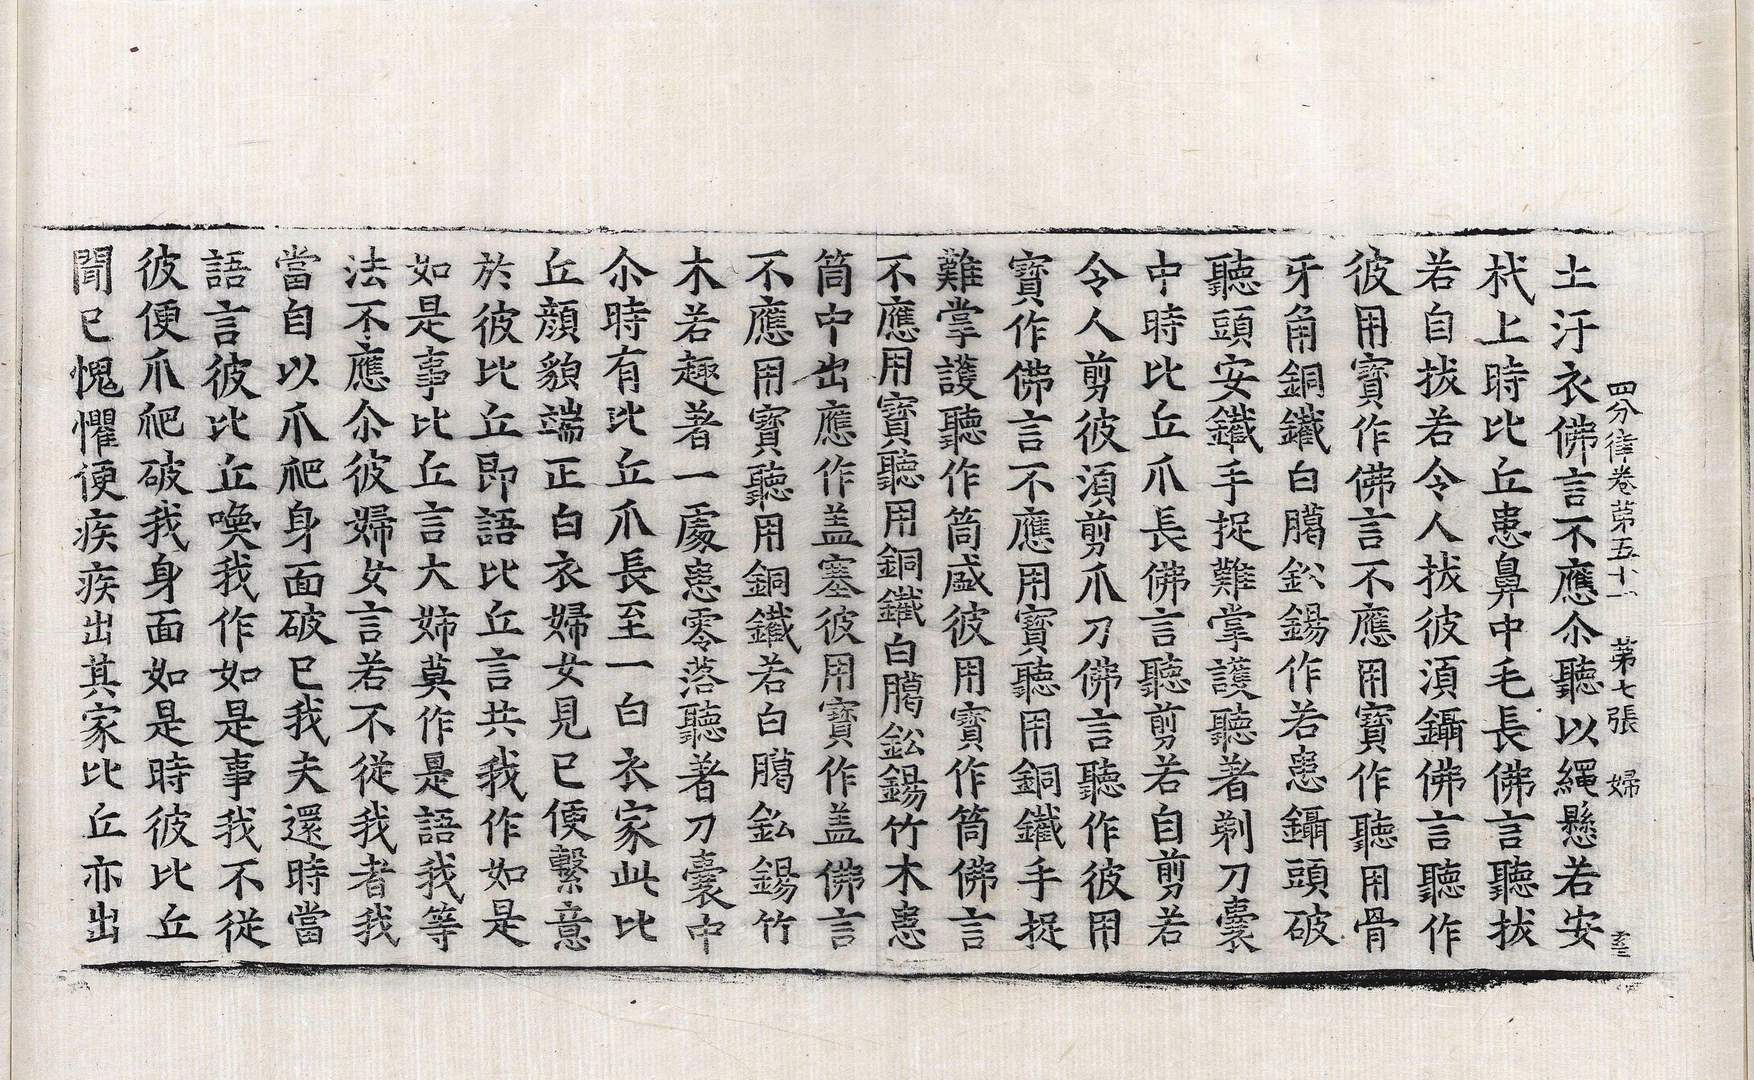 四分律卷第五十一 第七張 婦
土汙衣佛言不應尒聽以繩懸若安
杙上時比丘患鼻中毛長佛言聽拔
若自拔若令人拔彼湏鑷佛言聽作
彼用寶作佛言不應用寶作聽用骨
牙角銅鐵白鑞鈆錫作若患鑷頭破
聽頭安鐵手捉難掌護聽著剃刀囊
中時比丘爪長佛言聽剪若自剪若
令人剪彼湏剪爪刀佛言聽作彼用
寶作佛言不應用寶聽用銅鐵手捉
難掌護聽作筒盛彼用寶作筒佛言
不應用寶聽用銅鐵白鑞鈆錫竹木患
筒中出應作盖塞彼用寶作盖佛言
不應用寶聽用銅鐵若白鑞鈆錫竹
木若趣著一處患零落聽著刀囊中
尒時有比丘爪長至一白衣家此比
丘顔貌端正白衣婦女見已便繫意
於彼比丘即語比丘言共我作如是
如是事比丘言大姊莫作是語我等
法不應尒彼婦女言若不從我者我
當自以爪爬身面破已我夫還時當
語言彼比丘喚我作如是事我不從
彼便爪爬破我身面如是時彼比丘
聞已愧懼便疾疾出其家比丘亦出